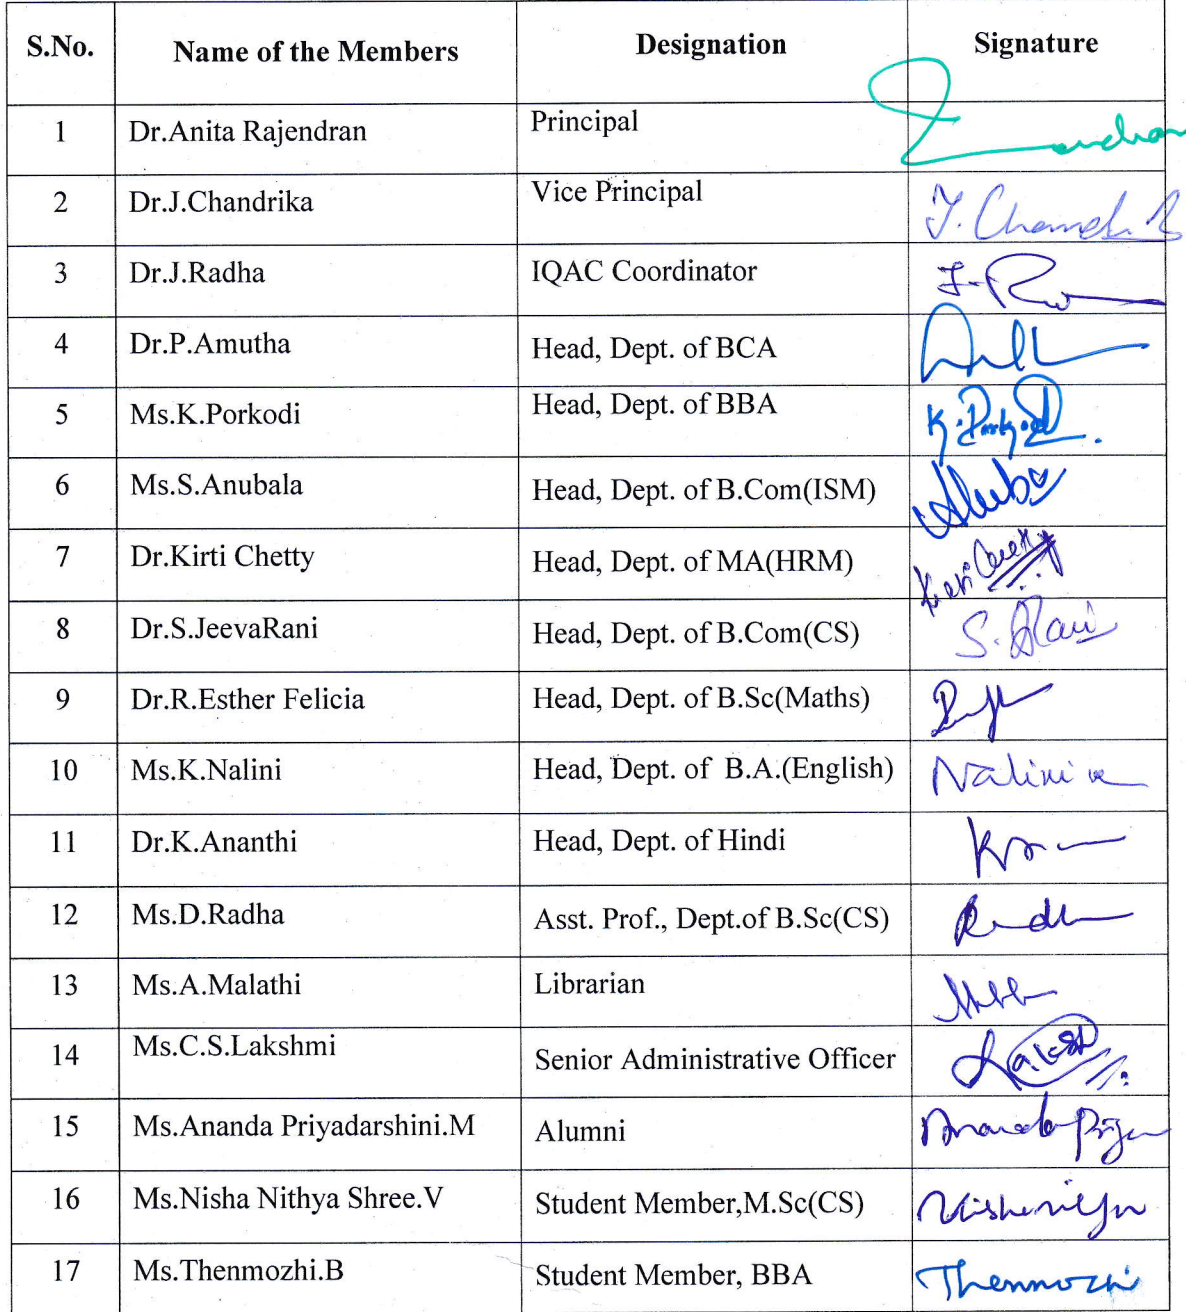 S.No. Name of the Members Designation Signature
1 Dr.Anita Rajendran Principal
2 Dr.J.Chandrika Vice Principal J. Chandrika
3 Dr.J.Radha IQAC Coordinator
4 Dr.P.Amutha Head, Dept. of BCA
5 Ms.K.Porkodi Head, Dept. of BBA K. Porkodi
6 Ms.S.Anubala Head, Dept. of B.Com(ISM)
7 Dr.Kirti Chetty Head, Dept. of MA(HRM)
8 Dr.S.JeevaRani Head, Dept. of B.Com(CS) S. JRani
9 Dr.R.Esther Felicia Head, Dept. of B.Sc(Maths)
10 Ms.K.Nalini Head, Dept. of B.A.(English) Nalini K
11 Dr.K.Ananthi Head, Dept. of Hindi
12 Ms.D.Radha Asst. Prof., Dept.of B.Sc(CS)
13 Ms.A.Malathi Librarian
14 Ms.C.S.Lakshmi Senior Administrative Officer
15 Ms.Ananda Priyadarshini.M Alumni
16 Ms.Nisha Nithya Shree.V Student Member,M.Sc(CS)
17 Ms.Thenmozhi.B Student Member, BBA Thenmozhi